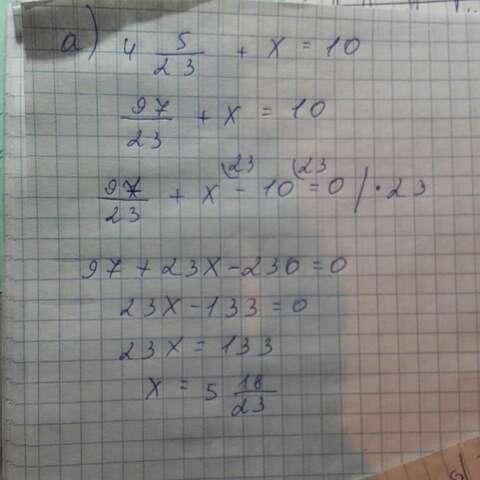 а) 4 5/23 + x = 10
97/23 + x = 10
97/23 + x (23 - 10 (23 = 0 / · 23
97 + 23x - 230 = 0
23x - 133 = 0
23x = 133
x = 5 18/23